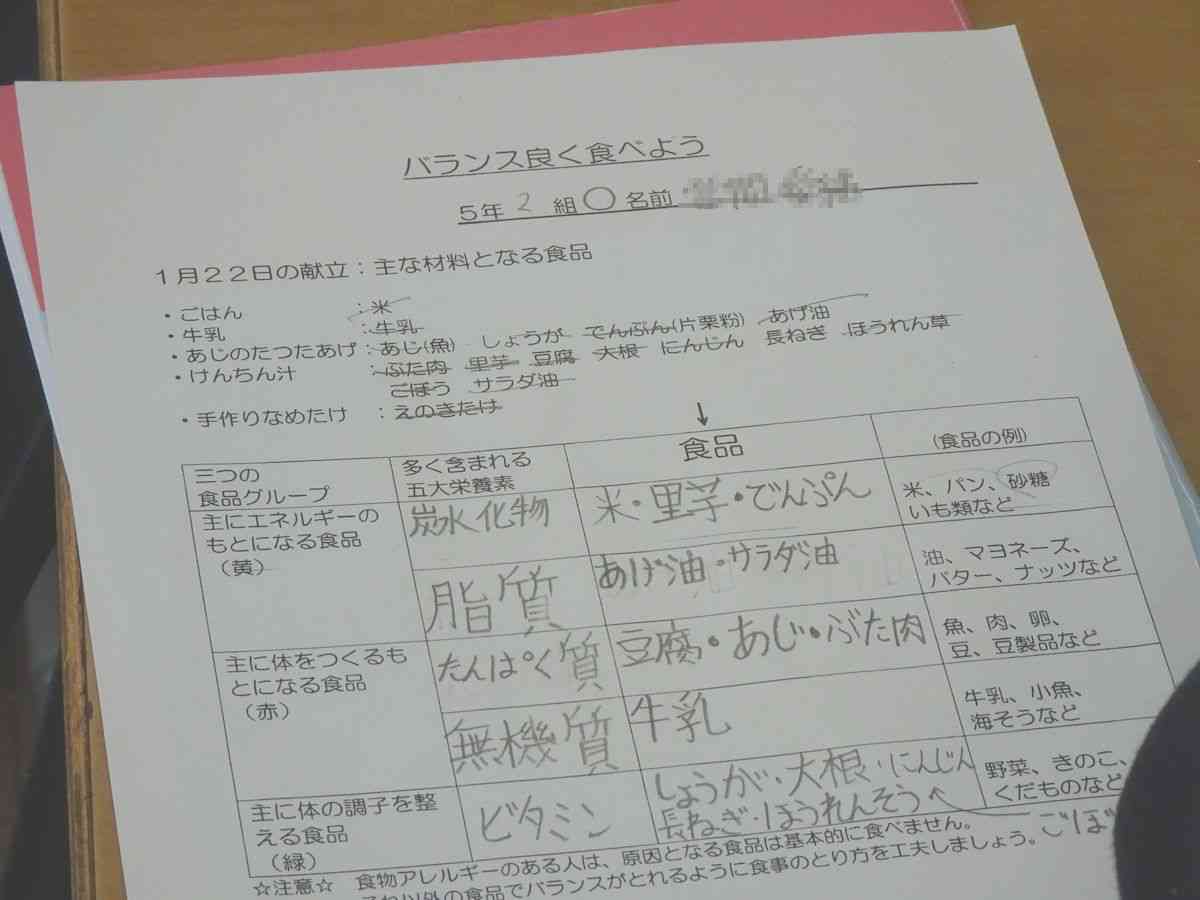 バランス良く食べよう
5年 2 組 ○ 名前
1月22日の献立：主な材料となる食品
・ごはん ：米
・牛乳 ：牛乳
・あじのたつたあげ：あじ(魚) しょうが でんぷん(片栗粉) あげ油
・けんちん汁 ：ぶた肉 里芋 豆腐 大根 にんじん 長ねぎ ほうれん草
ごぼう サラダ油
・手作りなめたけ ：えのきたけ
↓
三つの
食品グループ
多く含まれる
五大栄養素
食品
(食品の例)
主にエネルギーの
もとになる食品
（黄）
炭水化物
米・里芋・でんぷん
米、パン、砂糖
いも類など
脂質
あげ油・サラダ油
油、マヨネーズ、
バター、ナッツなど
主に体をつくるも
とになる食品
（赤）
たんぱく質
豆腐・あじ・ぶた肉
魚、肉、卵、
豆、豆製品など
無機質
牛乳
牛乳、小魚、
海そうなど
主に体の調子を整
える食品
（緑）
ビタミン
しょうが・大根・にんじん
長ねぎ・ほうれんそう
ごぼ
野菜、きのこ、
くだものなど
☆注意☆ 食物アレルギーのある人は、原因となる食品は基本的に食べません。
それ以外の食品でバランスがとれるように食事のとり方を工夫しましょう。